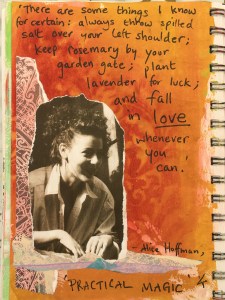 'There are some things I know
for certain: always throw spilled
salt over your left shoulder;
keep rosemary by your
garden gate; plant
lavender for luck;
and fall
in love
whenever
you
can.'
- Alice Hoffman,
'PRACTICAL MAGIC'